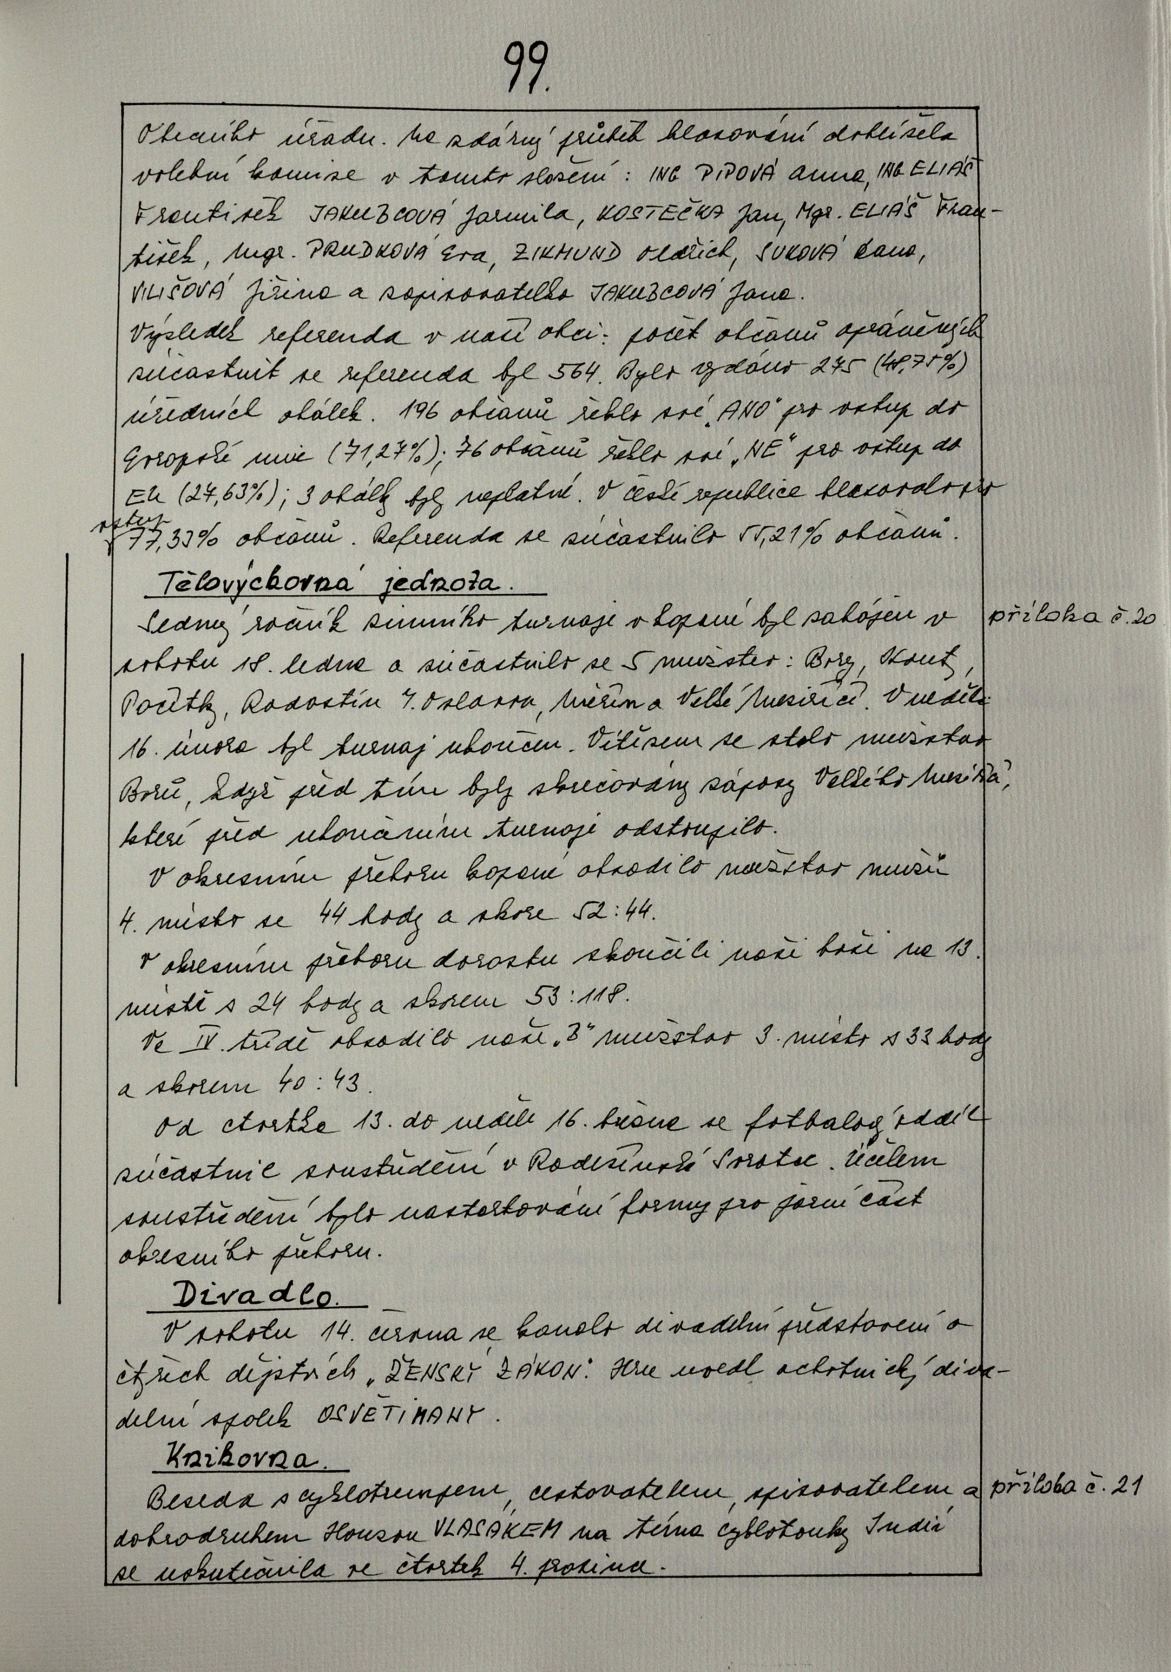 99.
Obecního úřadu. Na zdárný průběh hlasování dohlížela
volební komise v tomto složení: ING PIPOVÁ Anna, ING ELIÁŠ
František JAKUBCOVÁ Jarmila, KOSTEČKA Jan, Mgr. ELIÁŠ Fran-
tišek, Mgr. PRUDKOVÁ Eva, ZIKMUND Oldřich, SUKOVÁ Dana,
VILIŠOVÁ Jiřina a zapisovatelka JAKUBCOVÁ Jana.
Výsledek referenda v naší obci: počet občanů oprávněných
zúčastnit se referenda byl 564. Bylo vydáno 275 (48,75%)
úředních obálek. 196 občanů řeklo své „ANO" pro vstup do
Evropské unie (71,27%); 76 občanů řeklo své „NE" pro vstup do
EU (27,63%); 3 obálky byly neplatné. V České republice hlasovalo pro
vstup
77,33% občanů. Referenda se zúčastnilo 55,21% občanů.
Tělovýchovná jednota.
Sedmý ročník zimního turnaje v kopané byl zahájen v
příloha č. 20
sobotu 18. ledna a zúčastnilo se 5 mužstev: Bory, Kouty,
Počítky, Radostín n. Oslavou, Měřín a Velké Meziříčí. V neděli
16. února byl turnaj ukončen. Vítězem se stalo mužstvo
Borů, když před tím byly skrečovány zápasy Velkého Meziříčí,
které před ukončením turnaje odstoupilo.
V okresním přeboru kopané obsadilo mužstvo mužů
4. místo se 44 body a skore 52:44.
V okresním přeboru dorostu skončili naši hoši na 13.
místě s 24 body a skorem 53:118.
Ve IV. třídě obsadilo naše „B" mužstvo 3. místo s 33 body
a skorem 40:43.
Od čtvrtka 13. do neděle 16. března se fotbalový oddíl
zúčastnil soustředění v Radešínské Svratce. Účelem
soustředění bylo nastartování formy pro jarní část
okresního přeboru.
Divadlo.
V sobotu 14. června se konalo divadelní představení o
čtyřech dějstvích „ŽENSKÝ ZÁKON". Hru uvedl ochotnický diva-
delní spolek OSVĚTIMANY.
Knihovna.
Beseda s cyklotrempem, cestovatelem, spisovatelem a
příloha č. 21
dobrodruhem Honzou VLASÁKEM na téma cyklotoulky Indií
se uskutečnila ve čtvrtek 4. prosince.